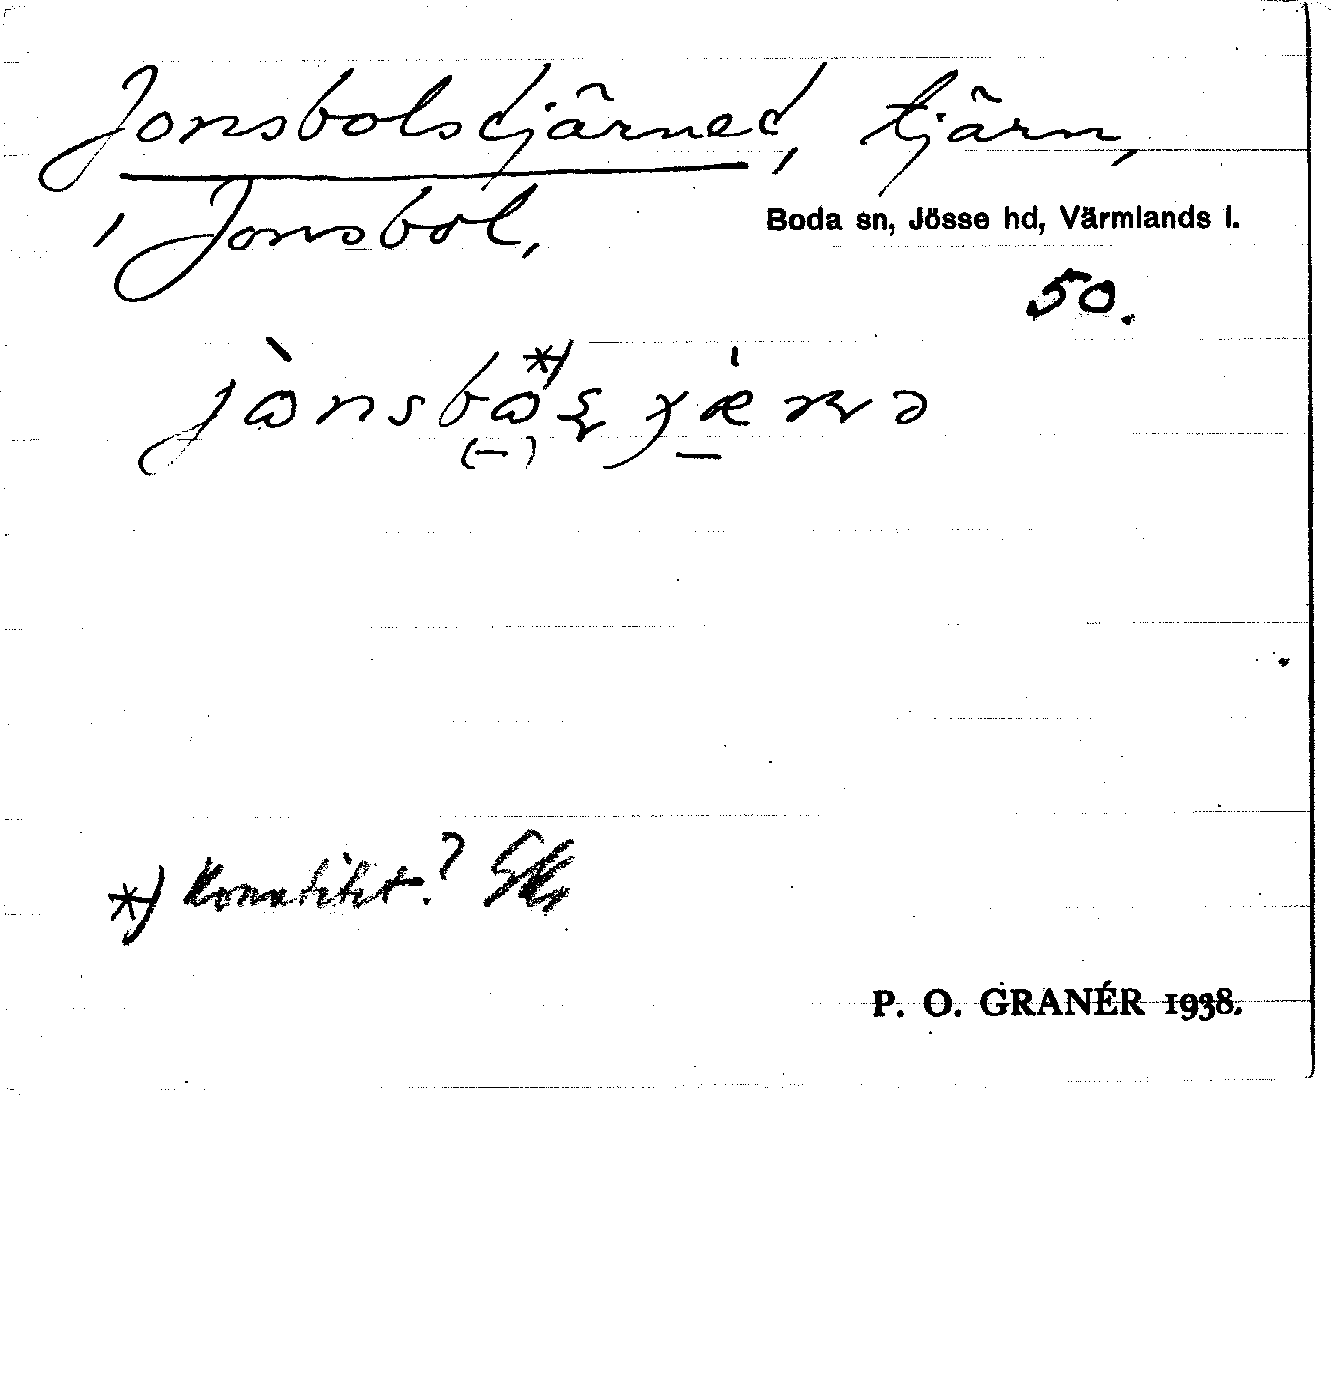 Jonsbolstjärnet, tjärn,
i Jonsbol,
Boda sn, Jösse hd, Värmlands l.
50.
*) Kvantitet?
P. O. GRANÉR 1938.